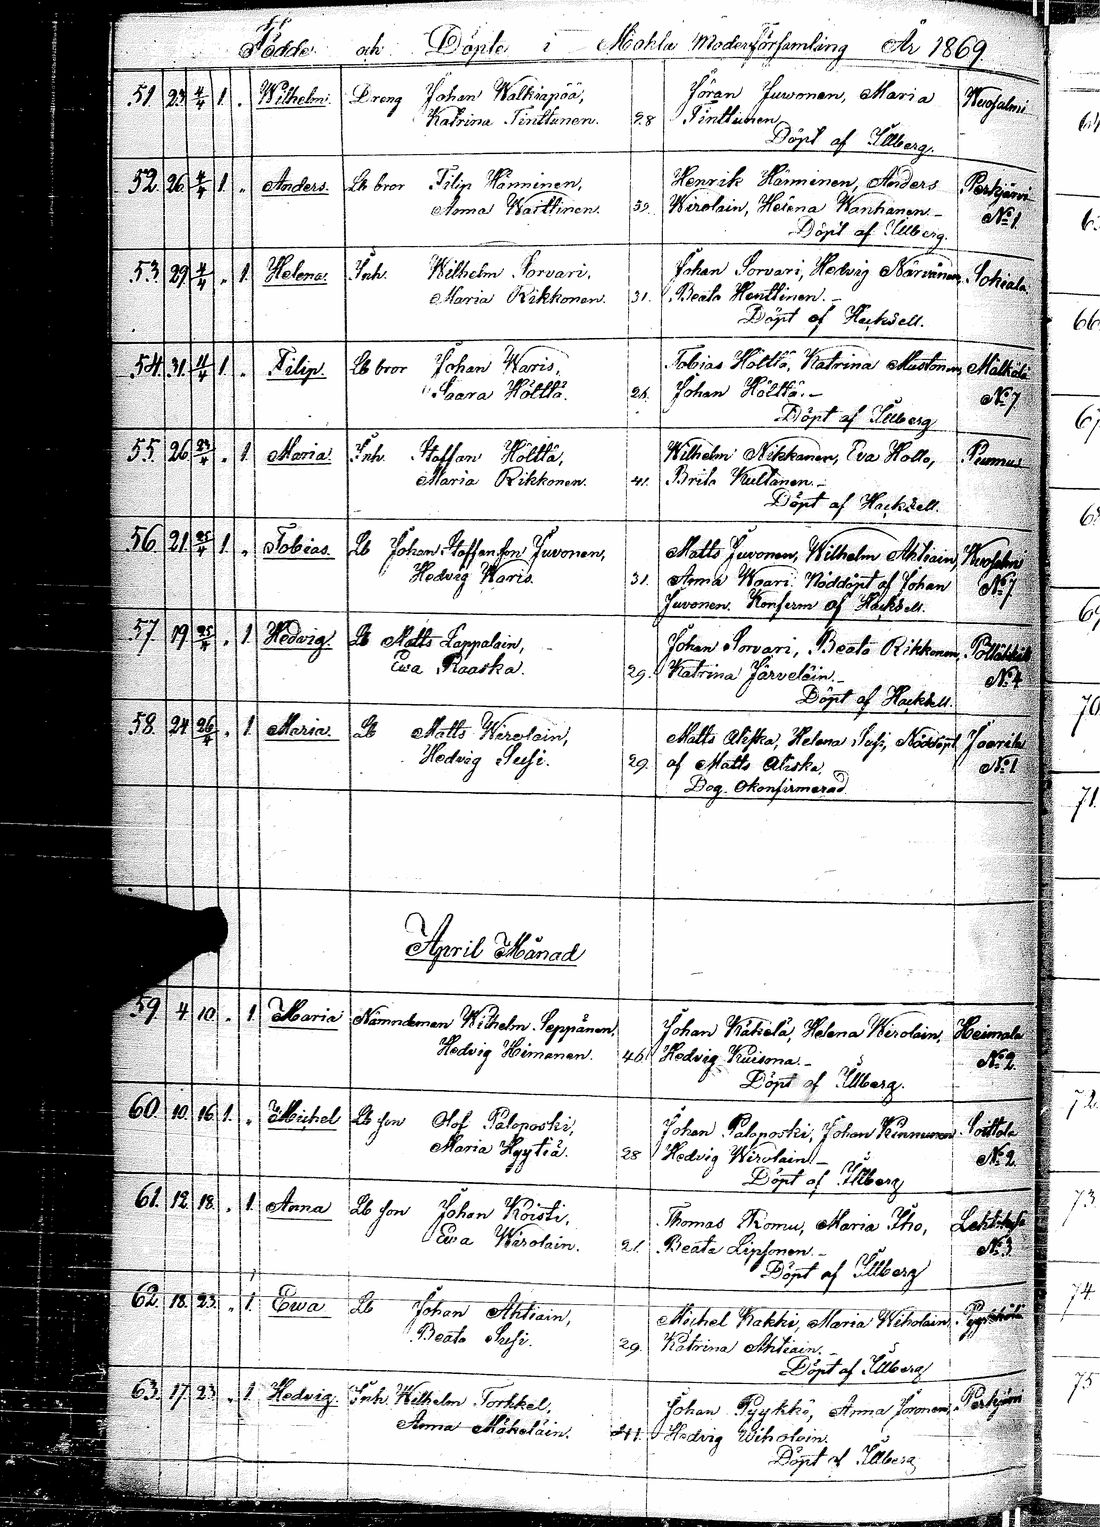 Födde och Döpte i Mohla Moderförsamling År 1869.
51 23 4/4 1 „ Wilhelm. Dreng Johan Walkiapää, Göran Juvonen, Maria Wuosalmi
Katrina Tinttunen. 28 Tinttunen
Döpt af Illberg.
52. 26 4/4 1 „ Anders. Lb bror Filip Hänninen, Henrik Hänninen, Anders Perkjärvi
Anna Warttinen. 39. Wirolain, Helena Wanhanen. - No 1.
Döpt af Illberg.
53. 29 4/4 „ 1. Helena. Inh. Wilhelm Sorvari, Johan Sorvari, Hedvig Närvänen, Sokiala
Maria Rikkonen. 31. Beata Henttinen. -
Döpt af Hacksell.
54. 31. 11/4 1 „ Filip. Lb bror Johan Waris, Tobias Hölttä, Katrina Mustonen, Mälkölä
Saara Hölttä. 26. Johan Hölttä. - No 7
Döpt af Illberg
55. 26 23/4 „ 1. Maria. Inh. Staffan Hölttä, Wilhelm Nikkanen, Eva Hollo, Punnus
Maria Rikkonen. 41. Brita Kultanen. -
Döpt af Hacksell.
56. 21. 25/4 1. „ Tobias. Lb Johan Staffansson Juvonen, Matts Juvonen, Wilhelm Ahtiain, Wuosalmi
Hedvig Waris. 31. Anna Waari. Nöddöpt af Johan No 7
Juvonen. Konferm af Hacksell.
57. 19 25/4 „ 1. Hedvig. Lb Matts Lappalain, Johan Sorvari, Beata Rikkonen,
Ewa Raaska. 29. Katrina Järveläin. - No 4
Döpt af Hacksell.
58. 24 26/4 „ 1 Maria. Lb Matts Wirolain, Matts Aliska, Helena Susi, Nöddöpt Jaarila
Hedvig Susi. 29. af Matts Aliska. No 1
Dog. okonfirmerad
April Månad
59. 4 10. „ 1. Maria Nämndeman Wilhelm Seppänen, Johan Käkelä, Helena Wirolain, Heimala
Hedvig Himanen. 46. Hedvig Kuisma. - No 2
Döpt af Illberg.
60. 10. 16. 1. „ Michel Lb son Olof Paloposki, Johan Paloposki, Johan Kinnunen. Soittola
Maria Hyytiä. 28 Hedvig Wirolain - No 2.
Döpt af Illberg
61. 12. 18. „ 1. Anna Lb son Johan Koisti, Thomas Romu, Maria Iho,
Ewa Wirolain. 21. Beata Lipsonen. - No 3
Döpt af Illberg
62. 18. 23. „ 1. Ewa Lb Johan Ahtiain, Michel Kakki, Maria Wiholain,
Beata Susi. 29. Katrina Ahtiain. -
Döpt af Illberg
63. 17. 23 „ 1 Hedvig. Inh. Wilhelm Torkkel, Johan Pyykkö, Anna Joronen, Perkjärvi
Anna Mökeläin. 41. Hedvig Wiholain.
Döpt af Illberg
66
67
70
71.
72.
73.
74.
75